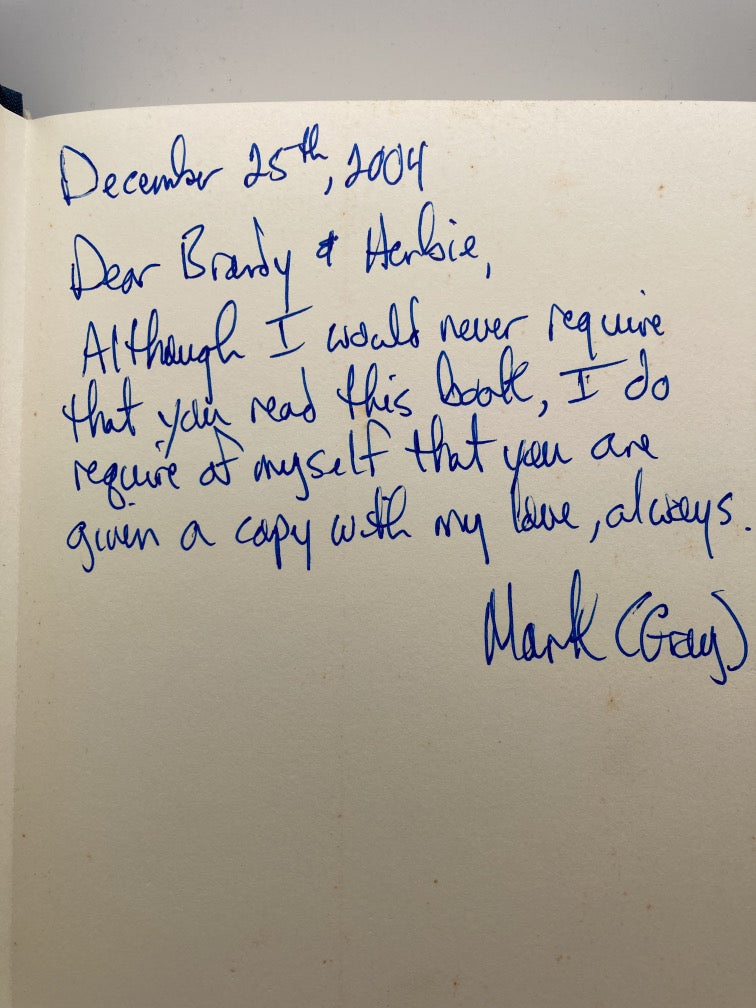 December 25th, 2004
Dear Brandy & Herbie,
Although I would never require
that you read this book, I do
require of myself that you are
given a copy with my love, always.
Mark (Gray)